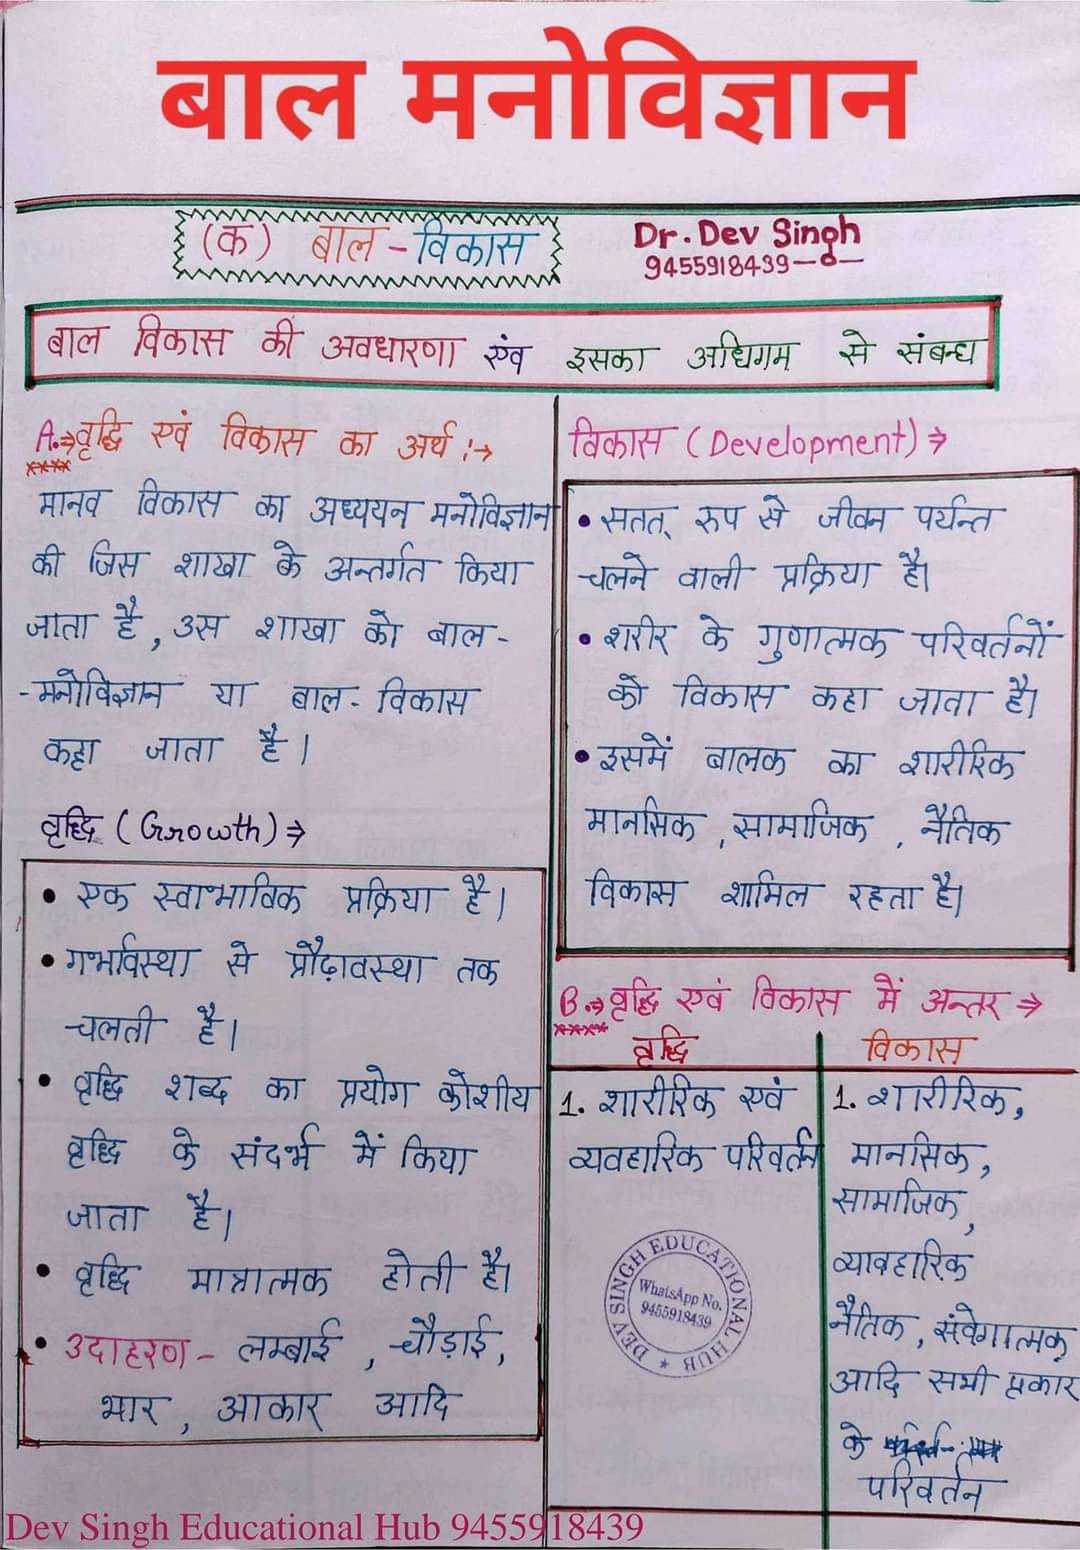 बाल मनोविज्ञान
(क) बाल-विकास
Dr. Dev Singh
9455918439
बाल विकास की अवधारणा एंव इसका अधिगम से संबन्ध
A.⇒ वृद्धि एवं विकास का अर्थ :→
मानव विकास का अध्ययन मनोविज्ञान
की जिस शाखा के अन्तर्गत किया
जाता है, उस शाखा को बाल-
-मनोविज्ञान या बाल-विकास
कहा जाता है।
वृद्धि (Growth) ⇒
• एक स्वाभाविक प्रक्रिया है।
• गर्भावस्था से प्रौढ़ावस्था तक
चलती है।
• वृद्धि शब्द का प्रयोग कोशीय
वृद्धि के संदर्भ में किया
जाता है।
• वृद्धि मात्रात्मक होती है।
• उदाहरण - लम्बाई, चौड़ाई,
भार, आकार आदि
विकास (Development) ⇒
• सतत् रुप से जीवन पर्यन्त
चलने वाली प्रक्रिया है।
• शरीर के गुणात्मक परिवर्तनों
को विकास कहा जाता है।
• इसमें बालक का शारीरिक
मानसिक, सामाजिक, नैतिक
विकास शामिल रहता है।
B.⇒ वृद्धि एवं विकास में अन्तर ⇒
वृद्धि
1. शारीरिक एवं
व्यवहारिक परिवर्तन
विकास
1. शारीरिक,
मानसिक,
सामाजिक,
व्यावहारिक
नैतिक, संवेगात्मक
आदि सभी प्रकार
के
परिवर्तन
DEV SINGH EDUCATIONAL HUB
WhatsApp No.
9455918439
Dev Singh Educational Hub 9455918439